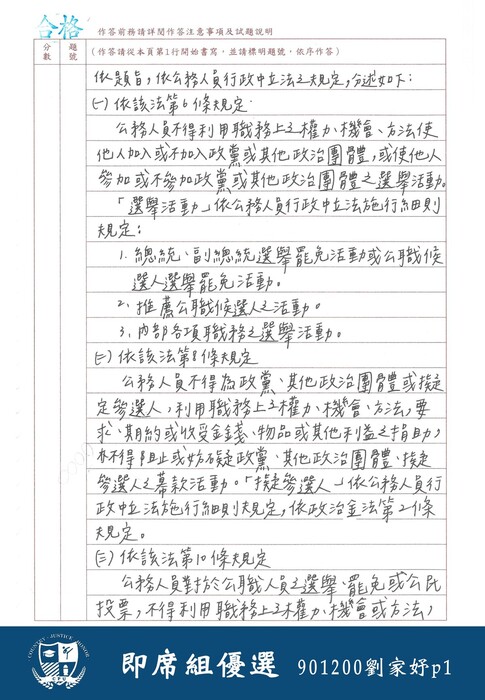 合格
作答前務請詳閱作答注意事項及試題說明
分數
題號
(作答請從本頁第1行開始書寫，並請標明題號，依序作答)
依題旨，依公務人員行政中立法之規定，分述如下：
(一)依該法第6條規定
公務人員不得利用職務上之權力、機會、方法使
他人加入或不加入政黨或其他政治團體，或使他人
參加或不參加政黨或其他政治團體之選舉活動。
「選舉活動」依公務人員行政中立法施行細則
規定：
1. 總統、副總統選舉罷免活動或公職候
選人選舉罷免活動。
2. 推薦公職候選人之活動。
3. 內部各項職務之選舉活動。
(二)依該法第8條規定
公務人員不得為政黨、其他政治團體或擬
定參選人，利用職務上之權力、機會、方法，要
求、期約或收受金錢、物品或其他利益之捐助，
亦不得阻止或妨礙政黨、其他政治團體、擬
參選人之募款活動。「擬參選人」依公務人員行
政中立法施行細則規定，依政治獻金法第2條
規定。
(三)依該法第10條規定
公務人員對於公職人員之選舉、罷免或公民
投票，不得利用職務上之權力、機會或方法，
COUNTRY · JUSTICE · HONOR
即席組優選 901200劉家妤p1